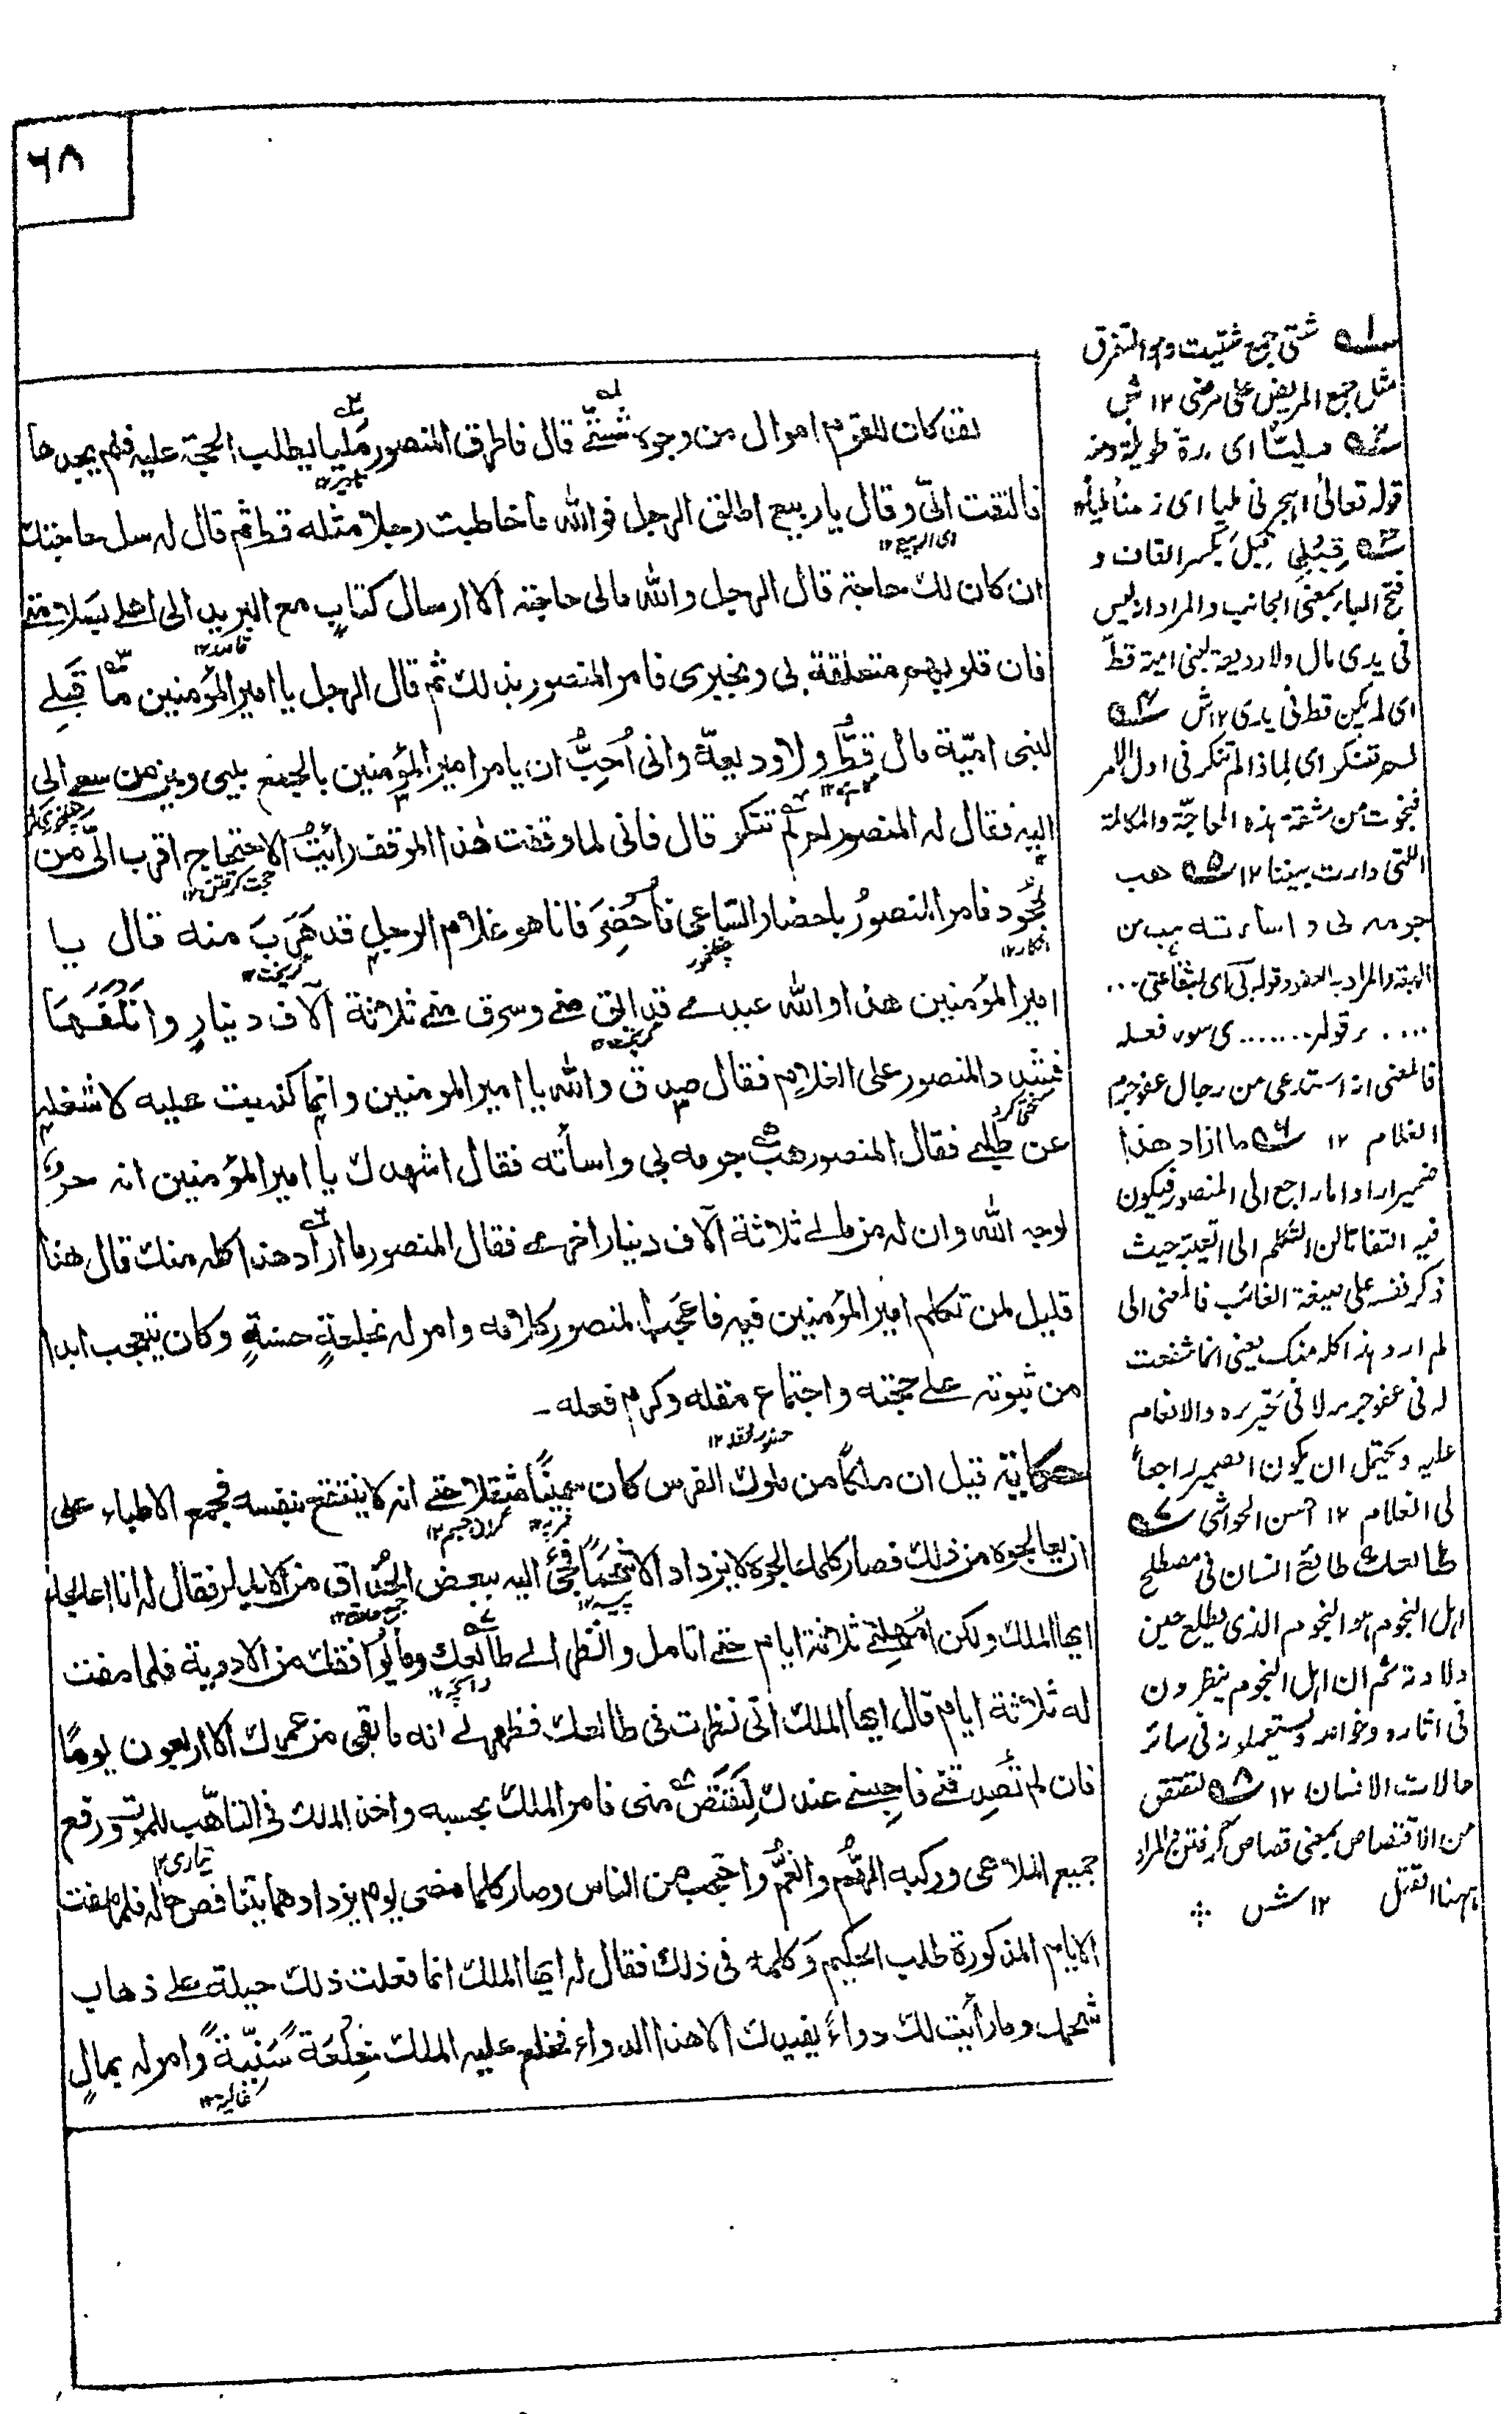 ٦٨
لقد كان للقوم اموال من وجوه شتّٰے قال فاطرق المنصور مَلِيًا يطلب الحجة عليه فلم يجدها
فالتفت الیّ وقال يا ربيع اطلق الرجل فوالله ما خاطبت رجلا مثله قط ثم قال له سل حاجتك
ان كان لك حاجة قال الرجل والله مالى حاجة الا ارسال كتابٍ مع البريد الى اهلے بسلامتے
فان قلوبهم متعلقة بى وبخبرى فامر المنصور بذلك ثم قال الرجل يا امير المؤمنين مّا قِبَلِے
لبنى اميّة مال قطُّ ولا وديعةٌ وانى اُحِبُّ ان يامر امير المؤمنين بالجمع بينى وبين من سعے الى
اليه فقال له المنصور لِمَ لَمْ تنكر قال فانى لما وقفت هٰذا الموقف رأيتُ الاحتجاج اقرب الیّ من
الجُحُود فامر المنصورُ باحضار السّاعى فأُحْضِرَ فاذا هو غلام الرجل قد هَرَبَ منه قال يا
امير المؤمنين هذا والله عبدے قد ابق منے وسرق منے ثلاثة آلاف دينارٍ واتلفَهَا
فشدد المنصور على الغلام فقال صدق والله يا امير المومنين وانما كذبت عليه لاشغله
عن طلبے فقال المنصور هب جرمه لى واساٴته فقال اشهدك يا امير المؤمنين انه حر
لوجه الله وان له من مالے ثلاثة آلاف دينار اخرے فقال المنصور ما اراد هذا كله منك قال هذا
قليل لمن تكلم امير المؤمنين فيه فاعجب المنصور كلامه وامر له بخلعةٍ حسنةٍ وكان يتعجب ابدا
من ثبوته علے حجته واجتماع عقله وكرم فعله ـ
حكاية قيل ان ملكًا من ملوك الفرس كان سمينًا مثقلا حتے انه لا ينتفع بنفسه فجمع الاطباء على
ان يعالجوه من ذلك فصار كلما عالجوه لا يزداد الا شحمًا فجئ اليه ببعض الحُذّاق من الاطباء فقال له انا اعالجك
ايها الملك ولكن امهلنے ثلاثة ايام حتے اتامل وانظر الے طالعك وما يوافقك من الادوية فلما مضت
له ثلاثة ايام قال ايها الملك انى نظرت فى طالعك فظهر لے انه ما بقى من عمرك الا اربعون يومًا
فان لم تُصدقنے فاحبسنے عندك لِتَقْتَصّ منى فامر الملك بحبسه واخذ الملك فى التاهّب للموت ورفع
جميع الملاهى وركبه الهَمُّ والغَمُّ واحتجب من الناس وصار كلما مضى يوم يزداد هما يتناقص حاله فلما مضت
الايام المذكورة طلب الحكيم وكلمه فى ذلك فقال له ايها الملك انما فعلت ذلك حيلة علے ذهاب
شحمك وما رأيت لك دواءً يفيدك الا هذا الدواء فخلع عليه الملك خِلْعَةً سَنِيّةً وامر له بمالٍ
١ شتى جمع شتيت وهو التفرق
مثل جمع المريض على مرضى ١٢ ش
مليًّا اى مدة طويلة ومنه
قوله تعالىٰ اهجرنى مليا اى زمنا طويلا
٣ قِبَلِى قبل بكسر القاف و
فتح الباء بمعنى الجانب والمراد انه ليس
فى يدى مال ولا وديعة لبنى امية قط
اى لم يكن قط فى يدى ١٢ ش ٤
لِمَ تنكر اى لماذا لم تنكر فى اول الامر
فنجوت من مشقة هذه المحاجّة والمكالمة
التى دارت بيننا ١٢ ٥ هب
جرمه لى واساءته هب من
الهبة والمراد به العفو وقوله لى اى بشفاعتى...
.... قوله ....... فعله
فالمعنى انه استدعى من رجال عفو جرم
الغلام ١٢ ٦ ما اراد هذا
ضمير اراد اما راجع الى المنصور فيكون
فيه التفاتا من التكلم الى الغيبة حيث
ذكر نفسه على صيغة الغائب فالمعنى انى
لم ارد هذا كله منك يعنى انما شفعت
له فى عفو جرمه لا فى تحريره والانعام
عليه ويحتمل ان يكون الضمير راجعاً
الى الغلام ١٢ احسن الحواشى ٧
طالعك طالع انسان فى مصطلح
اهل النجوم هو النجوم الذى يطلع حين
ولادته ثم ان اهل النجوم ينظرون
فى اثاره وخواصه ويستعملونه فى سائر
حالات الانسان ١٢ ٨ لتقتص
من الاقتصاص بمعنى قصاص گرفتن والمراد
ههنا القتل ١٢ ش